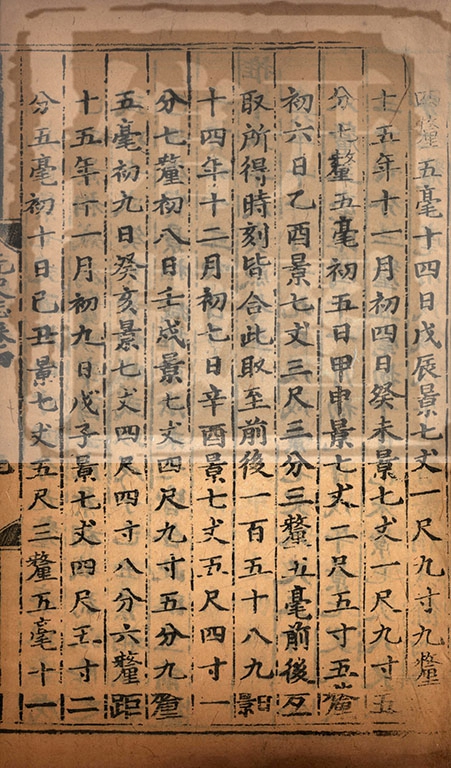 四釐五毫十四日戊辰景七丈一尺九寸九釐
十五年十一月初四日癸未景七丈一尺九寸五
分七釐五毫初五日甲申景七丈二尺五寸五釐
初六日乙酉景七丈三尺三分三釐五毫前後互
取所得時刻皆合此取至前後一百五十八九日景
十四年十二月初七日辛酉景七丈五尺四寸一
分七釐初八日壬戌景七丈四尺九寸五分九釐
五毫初九日癸亥景七丈四尺四寸八分六釐距
十五年十一月初九日戊子景七丈四尺五寸二
分五毫初十日己丑景七丈五尺三釐五毫十一